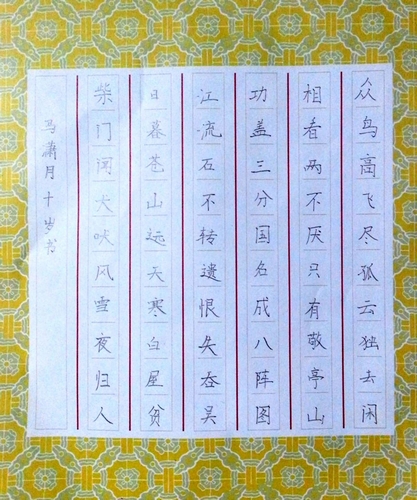 众鸟高飞尽孤云独去闲
相看两不厌只有敬亭山
功盖三分国名成八阵图
江流石不转遗恨失吞吴
日暮苍山远天寒白屋贫
柴门闻犬吠风雪夜归人
马潇月十岁书